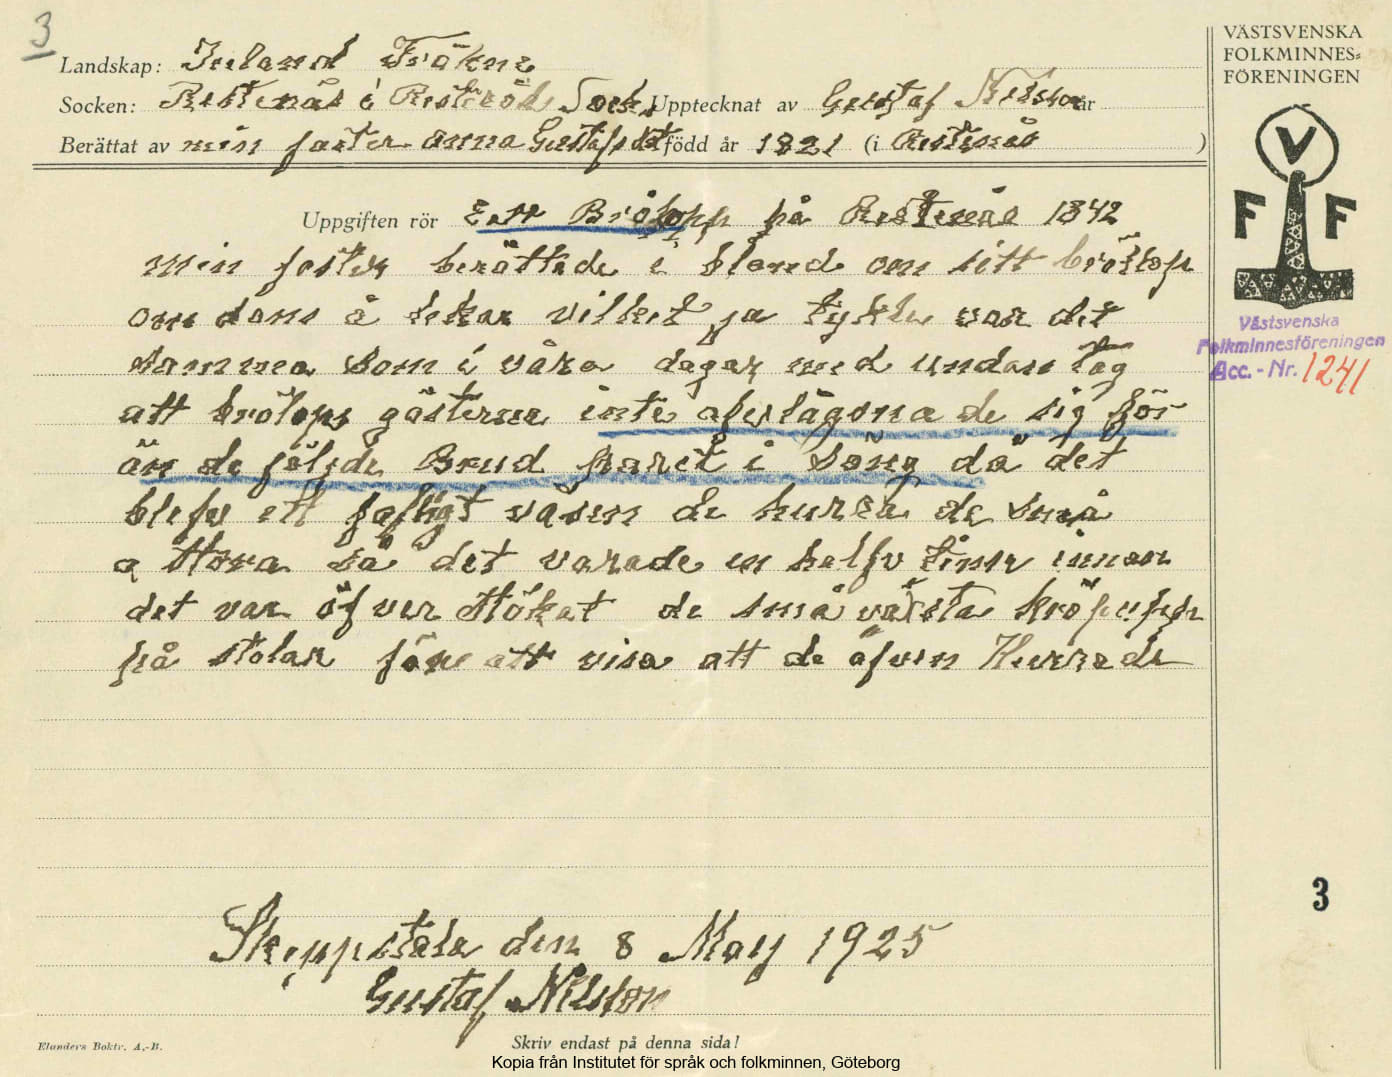 3
VÄSTSVENSKA
FOLKMINNES=
FÖRENINGEN
Landskap: Inland Fräkne
Socken: Restenäs i Resteröds Sock Upptecknat av Gustaf Nilsson år
Berättat av min faster Anna Gustafsdt född år 1821 (i Restenäs )
V
F F
Uppgiften rör Ett Brölopp på Restenäs 1842
min faster berättade i bland om sitt bröllop
om dans å lekar vilket ja tykte var det
samma som i våra dagar med undan tag
att brölops gästerna inte aflägsna de sig för
än de följde Brud paret i Säng då det
blefv ett fasligt väsen de hurra de små
a stora så det varade en half time innan
det var öfver stökat de små växsta kröp upp
på stolar före att visa att de äfven Hurrade
Västsvenska
Folkminnesföreningen
Acc. - Nr. 1241
3
den 8 May 1925
Gustaf Nilsson
Elanders Boktr. A.-B.
Skriv endast på denna sida!
Kopia från Institutet för språk och folkminnen, Göteborg